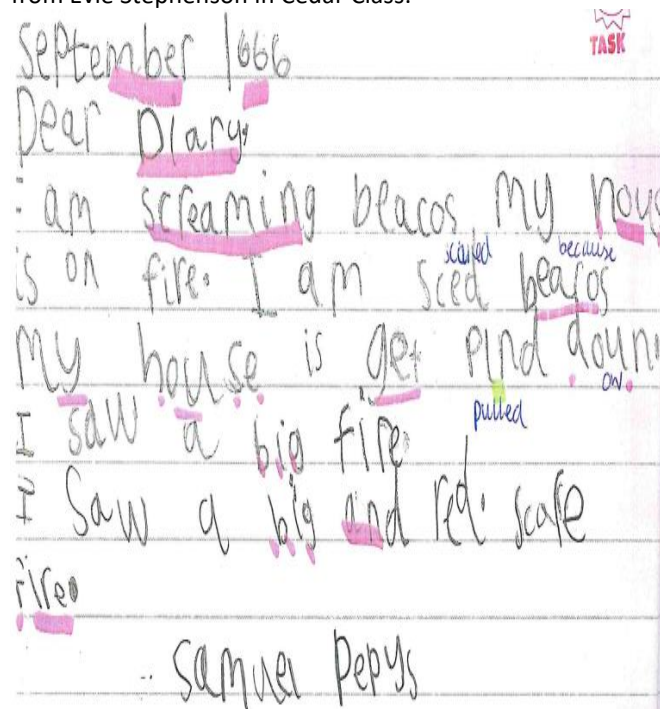 from Evie Stephenson in Cedar Class.
TASK
September 1666
Dear Diary.
I am screaming beacos my hous
is on fire. I am sced beacos
scared because
My house is get pind doun
ow
pulled
I saw a big fire
I Saw a big and red. scare
fire.
Samuel Pepys